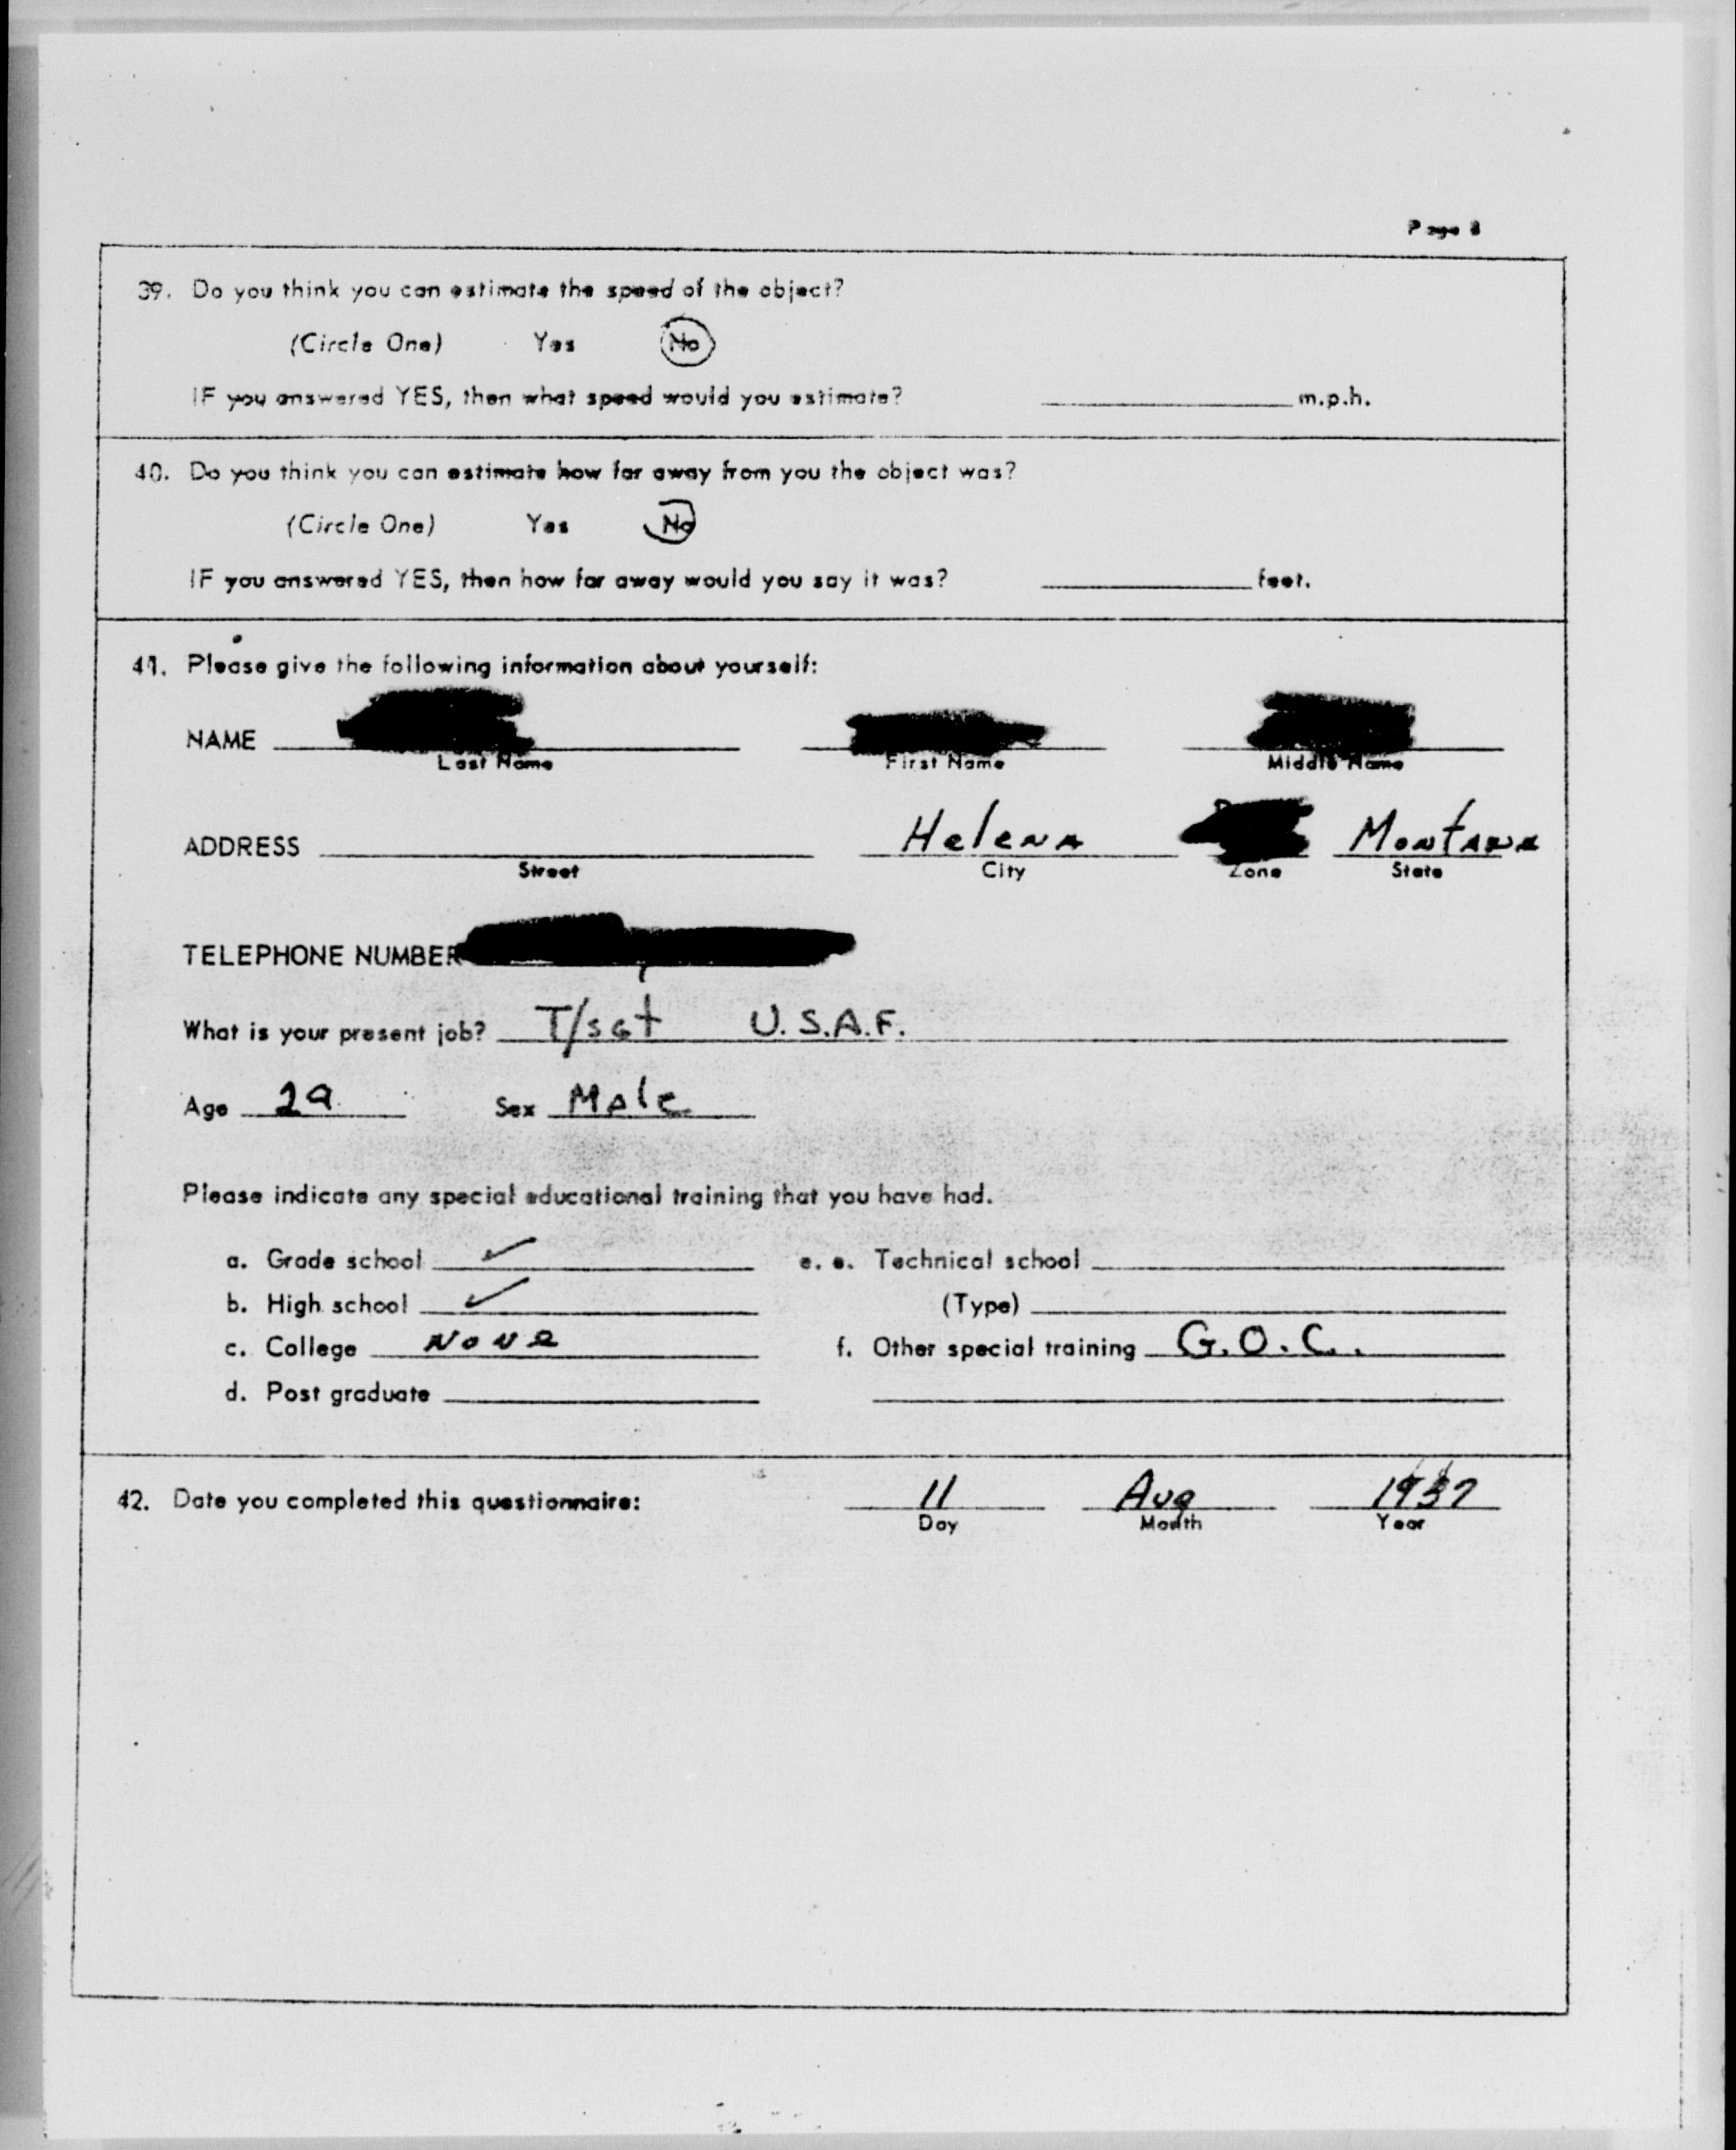 Page 8
39. Do you think you can estimate the speed of the object?
(Circle One) Yes No
IF you answered YES, then what speed would you estimate? m.p.h.
40. Do you think you can estimate how far away from you the object was?
(Circle One) Yes No
IF you answered YES, then how far away would you say it was? feet.
41. Please give the following information about yourself:
NAME
Last Name First Name Middle Name
ADDRESS Helena Montana
Street City Zone State
TELEPHONE NUMBER
What is your present job? T/sgt U.S.A.F.
Age 29 Sex Male
Please indicate any special educational training that you have had.
a. Grade school ✓ e. e. Technical school
b. High school ✓ (Type)
c. College None f. Other special training G.O.C.
d. Post graduate
42. Date you completed this questionnaire: 11 Aug 1957
Day Month Year